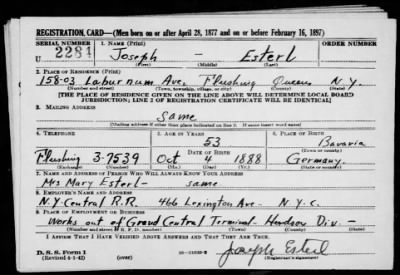 REGISTRATION CARD—(Men born on or after April 28, 1877 and on or before February 16, 1897)
SERIAL NUMBER 1. NAME (Print) ORDER NUMBER
U 2284 Joseph - Esterl
(First) (Middle) (Last)
2. PLACE OF RESIDENCE (Print)
158-03 Laburnum Ave. Flushing Queens N.Y.
(Number and street) (Town, township, village, or city) (County) (State)
[THE PLACE OF RESIDENCE GIVEN ON THE LINE ABOVE WILL DETERMINE LOCAL BOARD
JURISDICTION; LINE 2 OF REGISTRATION CERTIFICATE WILL BE IDENTICAL]
3. MAILING ADDRESS
Same
[Mailing address if other than place indicated on line 2. If same insert word same]
4. TELEPHONE 5. AGE IN YEARS 6. PLACE OF BIRTH
53 Bavaria
DATE OF BIRTH
Flushing 3-7539 Oct 4 1888 Germany.
7. NAME AND ADDRESS OF PERSON WHO WILL ALWAYS KNOW YOUR ADDRESS
Mrs Mary Esterl - same
8. EMPLOYER'S NAME AND ADDRESS
N.Y Central R.R. 466 Lexington Ave. N.Y.C.
9. PLACE OF EMPLOYMENT OR BUSINESS
Works out of Grand Central Terminal - Hudson Div -
I AFFIRM THAT I HAVE VERIFIED ABOVE ANSWERS AND THAT THEY ARE TRUE.
D. S. S. Form 1
(Revised 4-1-42)
Joseph Esterl